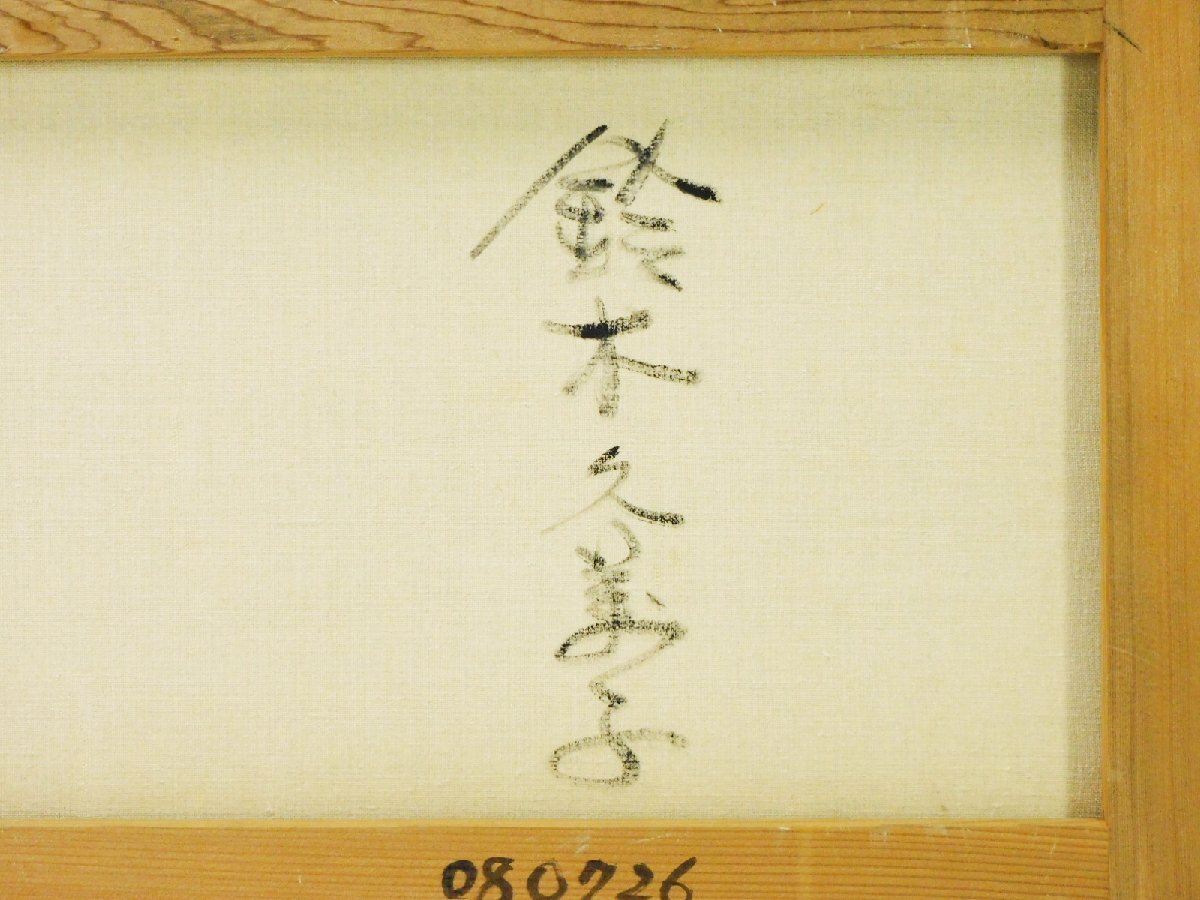 鈴木久美子
080726